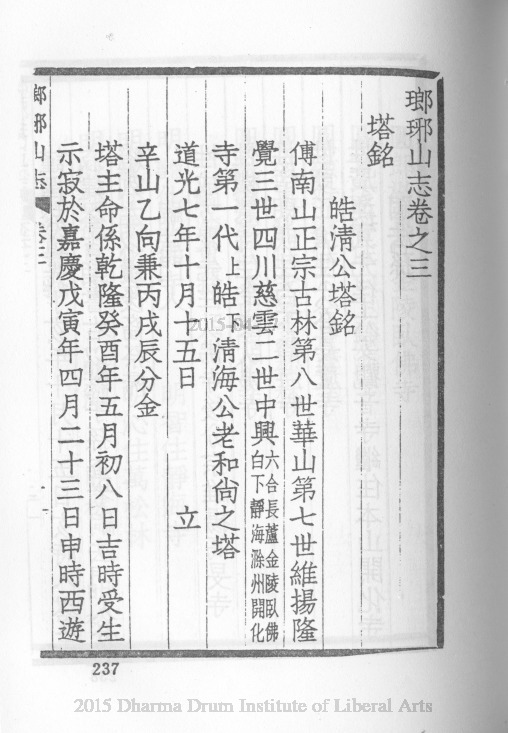 瑯琊山志卷之三
塔銘
皓清公塔銘
傳南山正宗古林第八世華山第七世維揚隆
覺三世四川慈雲二世中興六合長蘆金陵臥佛白下靜海滁州開化
寺第一代上皓下清海公老和尙之塔
道光七年十月十五日 立
辛山乙向兼丙戌辰分金
塔主命係乾隆癸酉年五月初八日吉時受生
示寂於嘉慶戊寅年四月二十三日申時西遊
瑯琊山志 卷三 一
237
2015 Dharma Drum Institute of Liberal Arts